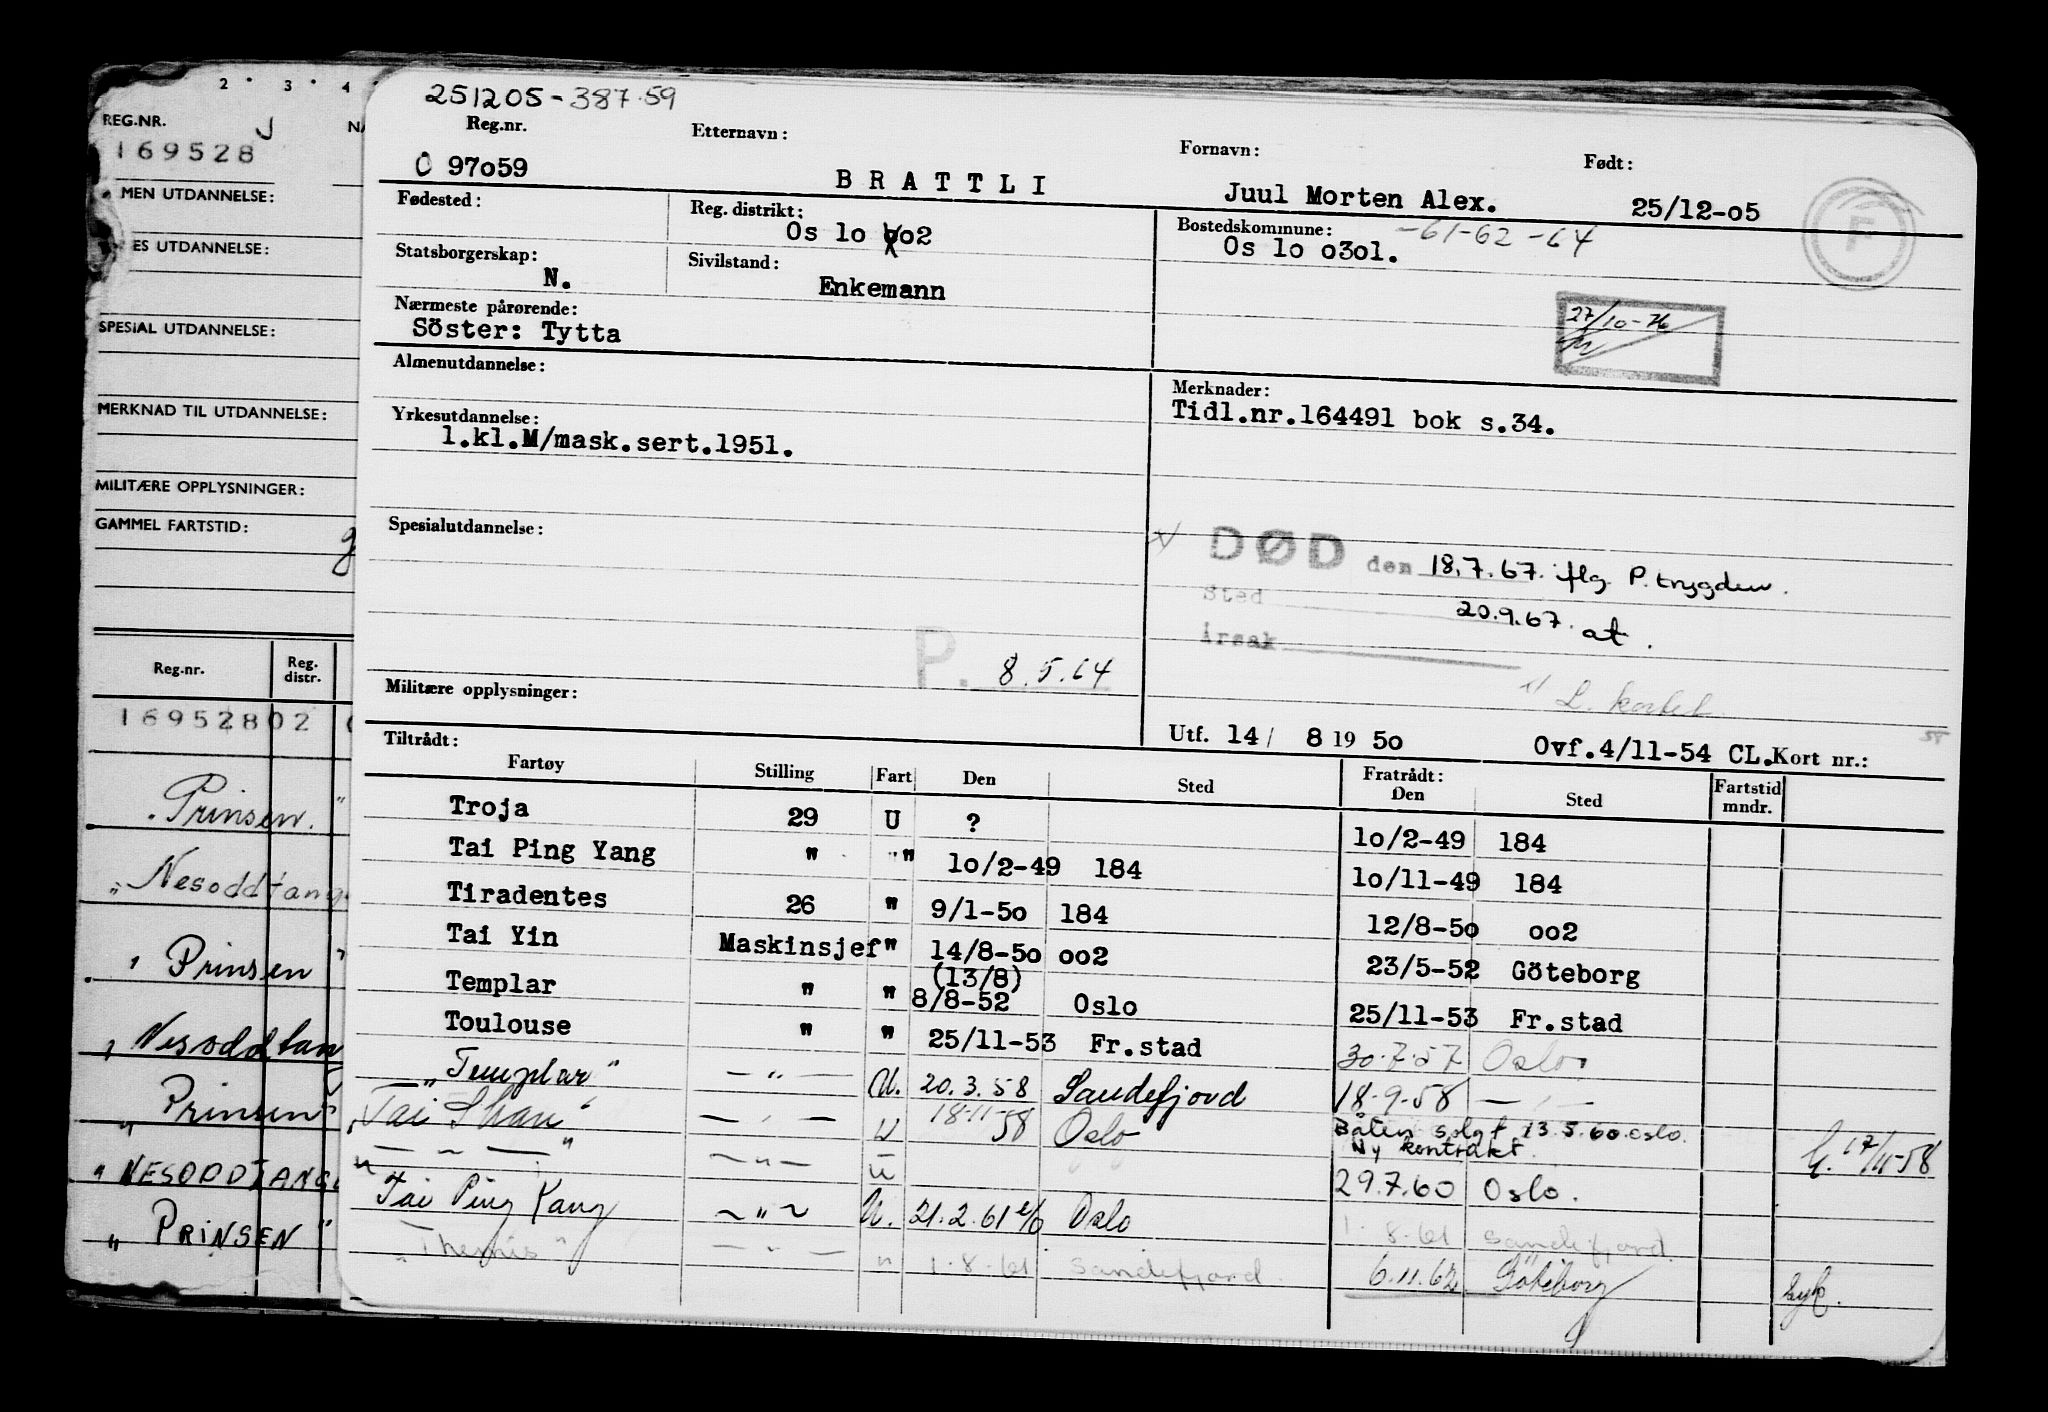 2 · 3 · 4
REG.NR.
J
NA
169528
MEN UTDANNELSE:
ES UTDANNELSE:
SPESIAL UTDANNELSE:
MERKNAD TIL UTDANNELSE:
MILITÆRE OPPLYSNINGER:
GAMMEL FARTSTID:
Reg.nr. Reg. distr.
169528 02
"Prinsen."
"Nesoddtang
"Prinsen"
"Nesoddtan
"Prinsen"
"NESODDTANG
"PRINSEN"
251205-387.59
Reg.nr. Etternavn: Fornavn: Født:
O 97o59 BRATTLI Juul Morten Alex. 25/12-o5
Fødested: Reg. distrikt: Bostedskommune: -61-62-64
Os lo oo2 Os lo o3o1.
F
Statsborgerskap: Sivilstand:
N. Enkemann
Nærmeste pårørende:
Söster: Tytta
27/10-76
Almenutdannelse: Merknader:
Tidl.nr.164491 bok s.34.
Yrkesutdannelse:
1.kl.M/mask.sert.1951.
Spesialutdannelse:
DØD den 18.7.67. flg. P.trygden.
Sted 20.9.67. at.
Årsak
P. 8.5.64
Militære opplysninger:
x) L. kortet
Utf. 14/ 8 19 50 Ovf.4/11-54 CL. Kort nr.:
Tiltrådt: Fratrådt:
Fartøy Stilling Fart Den Sted Den Sted Fartstid mndr.
Troja 29 U ? 1o/2-49 184
Tai Ping Yang " " 1o/2-49 184 1o/11-49 184
Tiradentes 26 " 9/1-5o 184 12/8-5o oo2
Tai Yin Maskinsjef " 14/8-5o oo2 23/5-52 Göteborg
(13/8)
Templar " " 8/8-52 Oslo 25/11-53 Fr.stad
Toulouse " " 25/11-53 Fr.stad 30.7.57 Oslo.
"Templar" — " — U. 20.3.58 Sandefjord 18.9.58 — " —
"Tai Shan" — " — U 18.11.58 Oslo Båten solgt 13.5.60. oslo.
Ny kontrakt. 17/11-58
" — " — " — " — U 29.7.60 Oslo.
Tai Ping Yang — " — U. 21.2.61 Oslo 1.8.61 Sandefjord.
"Themis" — " — " 1.8.61 Sandefjord. 6.11.62. Göteborg